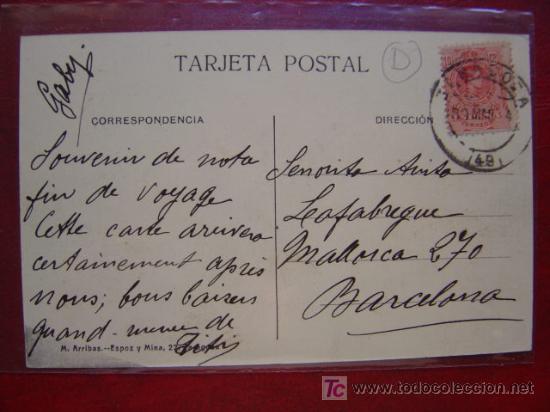 TARJETA POSTAL
D
Gaby
CORRESPONDENCIA
DIRECCIÓN
Souvenir de nota
fin de voyage
Cette carte arrivera
certainement après
nous; bons baisers
quand-même de
Titi
M. Arribas.—Espoz y Mina, 2
Señorita Anita
Lafabregue
Mallorca 270
Barcelona
MAR
(49)
TC todocoleccion.net